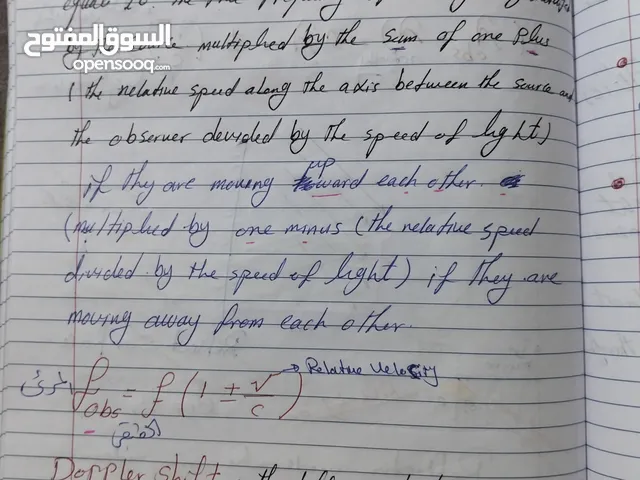 equal to. the
السوق المفتوح
opensooq.com
by the source multiplied by the sum of one plus
( the relative speed along the axis between the source and
the observer devided by the speed of light)
if they are moving up toward each other.
(multiplied by one minus (the relative speed
divided by the speed of light) if they are
moving away from each other.
f obs = f ( 1 ± v/c ) → Relative Velocity
Doppler shift